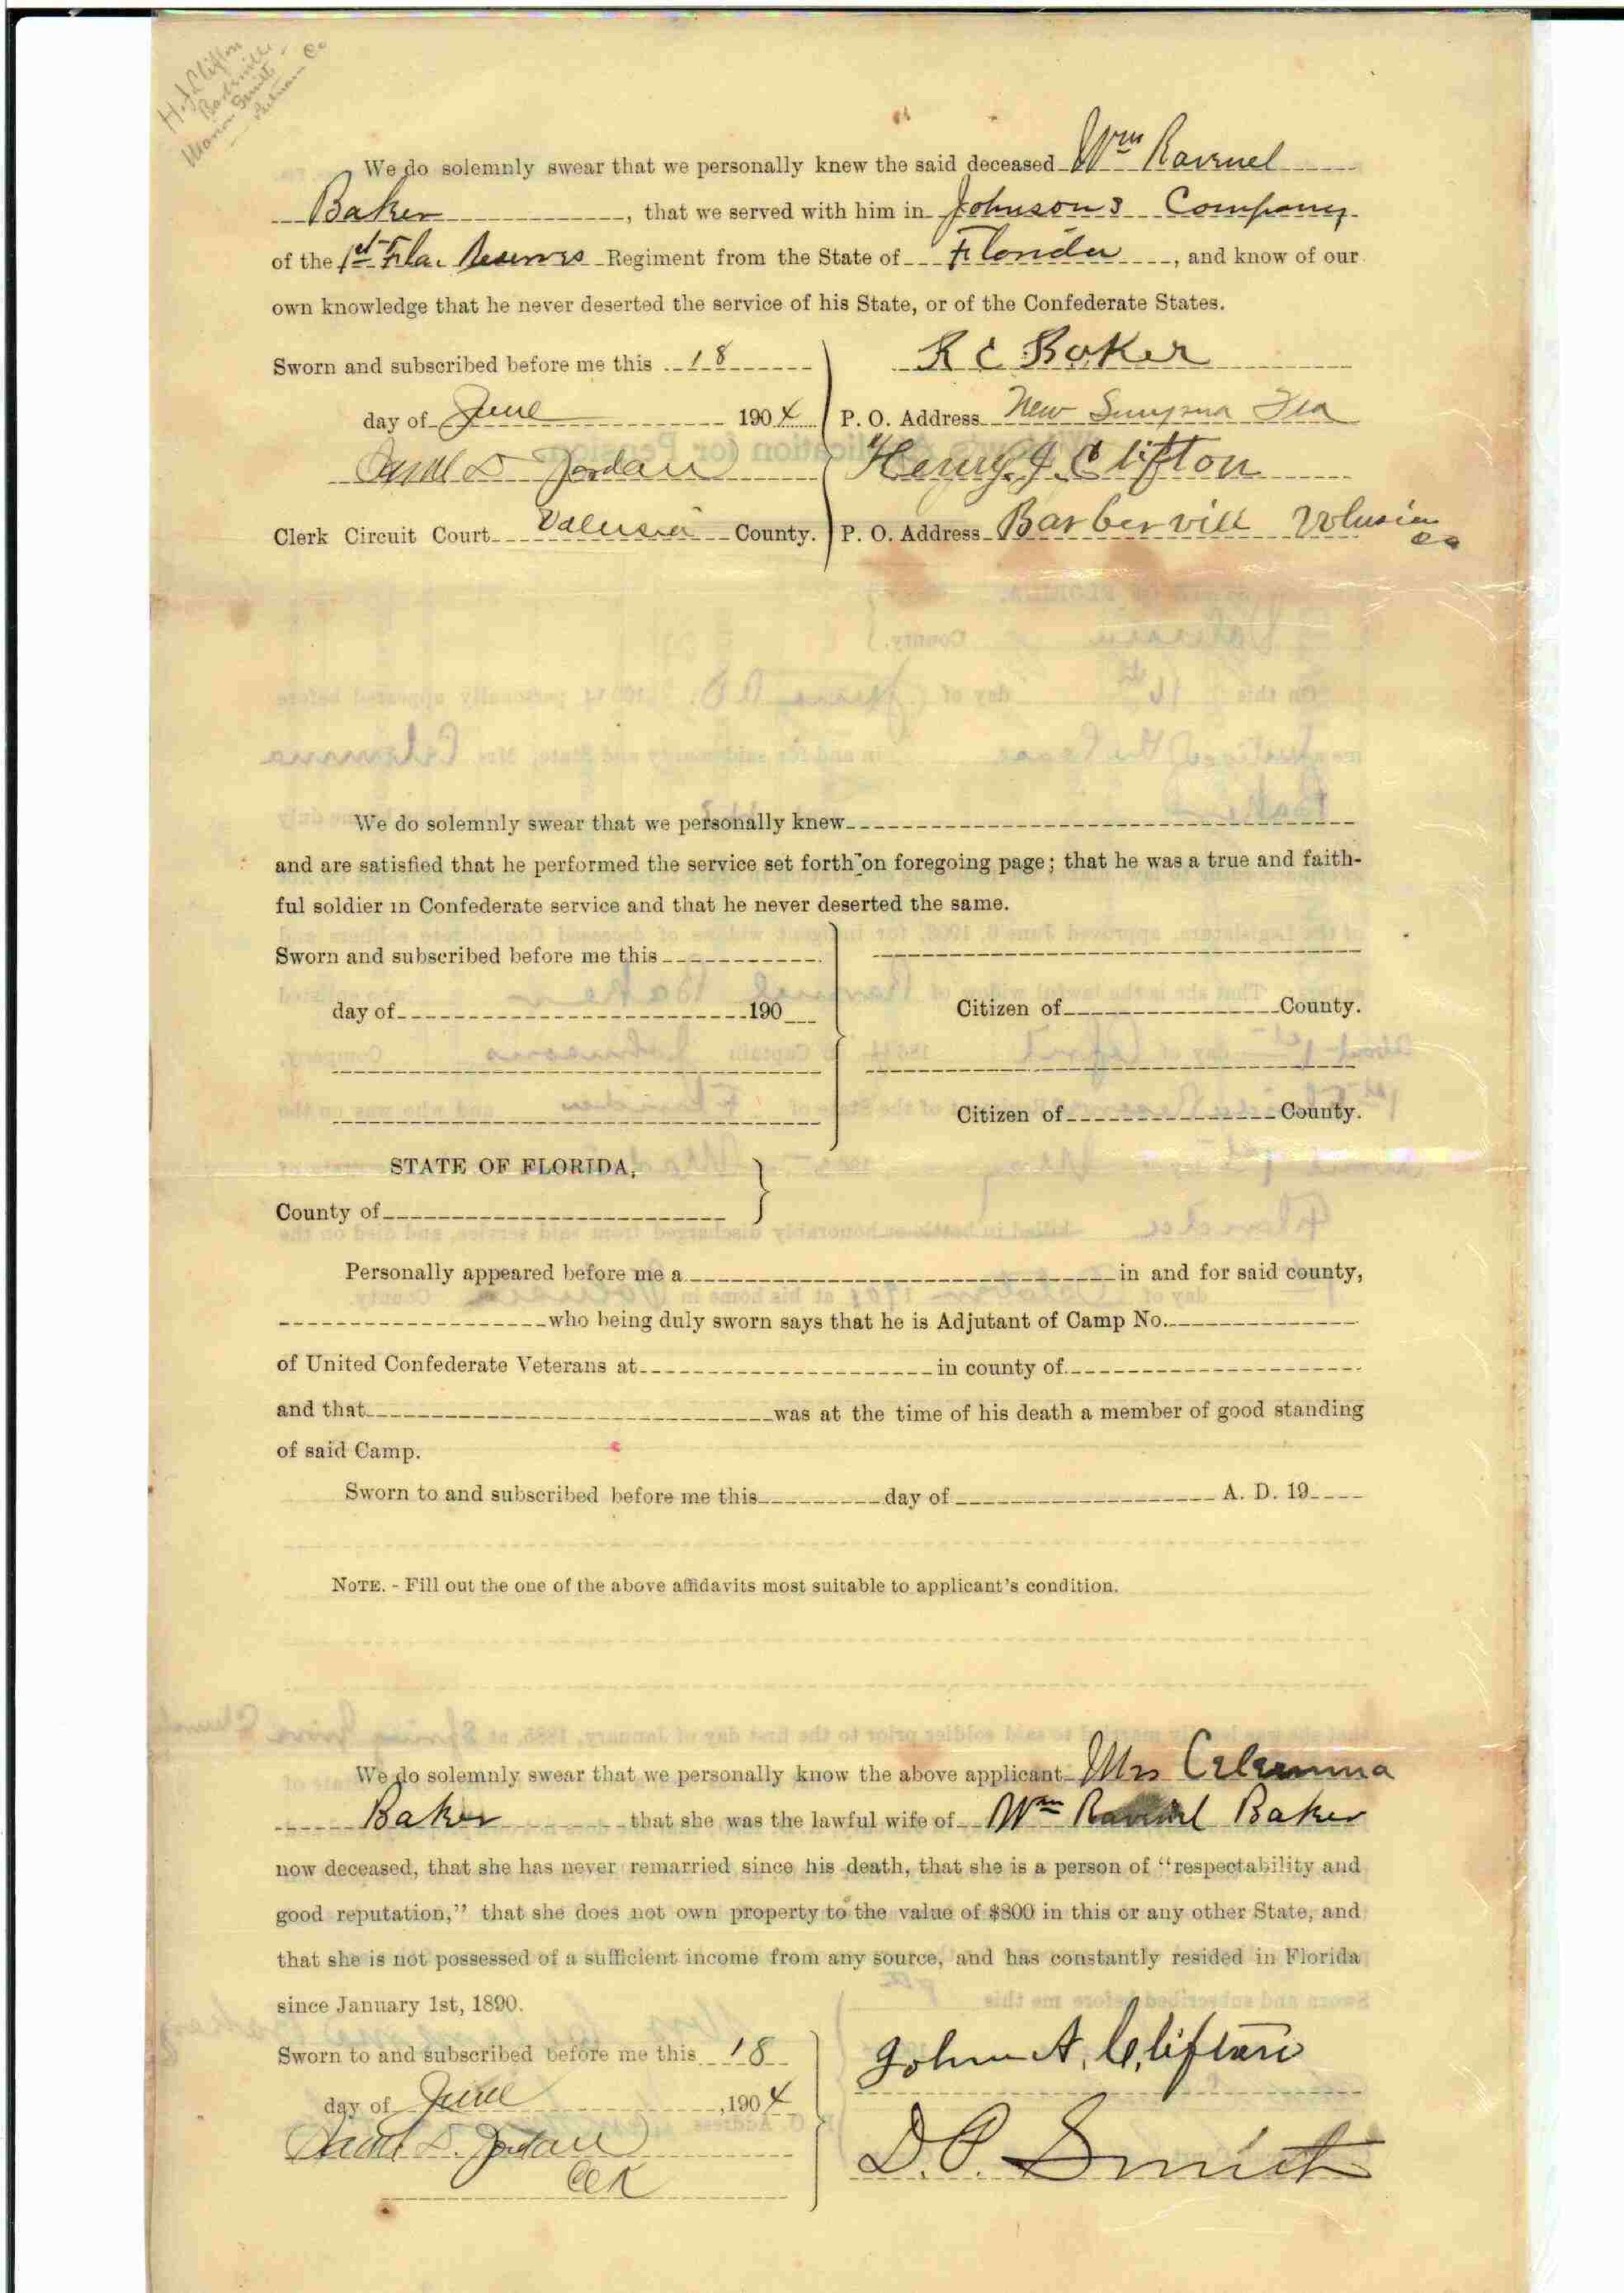 H. J. Clifton
Barberville
Marion Smith
Putnam Co
We do solemnly swear that we personally knew the said deceased Wm Ravenel
Baker, that we served with him in Johnsons Company
of the 1st Fla. Reserves Regiment from the State of Florida, and know of our
own knowledge that he never deserted the service of his State, or of the Confederate States.
Sworn and subscribed before me this 18
R C Baker
day of June 1904
P. O. Address New Smyrna Fla
Jordan
Henry J. Clifton
Clerk Circuit Court Volusia County.
P. O. Address Barbervill Volusia Co
We do solemnly swear that we personally knew
and are satisfied that he performed the service set forth on foregoing page; that he was a true and faith-
ful soldier in Confederate service and that he never deserted the same.
Sworn and subscribed before me this
day of 190
Citizen of County.
Citizen of County.
STATE OF FLORIDA,
County of
Personally appeared before me a in and for said county,
who being duly sworn says that he is Adjutant of Camp No.
of United Confederate Veterans at in county of
and that was at the time of his death a member of good standing
of said Camp.
Sworn to and subscribed before me this day of A. D. 19
NOTE. - Fill out the one of the above affidavits most suitable to applicant's condition.
We do solemnly swear that we personally know the above applicant Mrs Celemma
Baker that she was the lawful wife of Wm Ravenel Baker
now deceased, that she has never remarried since his death, that she is a person of "respectability and
good reputation," that she does not own property to the value of $800 in this or any other State, and
that she is not possessed of a sufficient income from any source, and has constantly resided in Florida
since January 1st, 1890.
Sworn to and subscribed before me this 18
John A. Clifton
day of June, 1904
D. Jordan
D. P. Smith
Clk